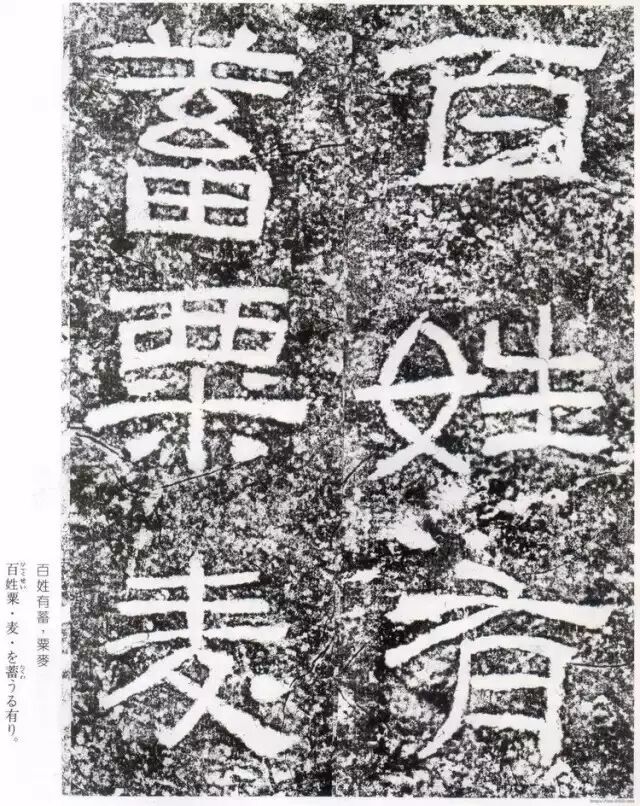 百姓有
蓄粟麦
百姓有蓄,粟麥
百姓粟・麦・を蓄うる有り。